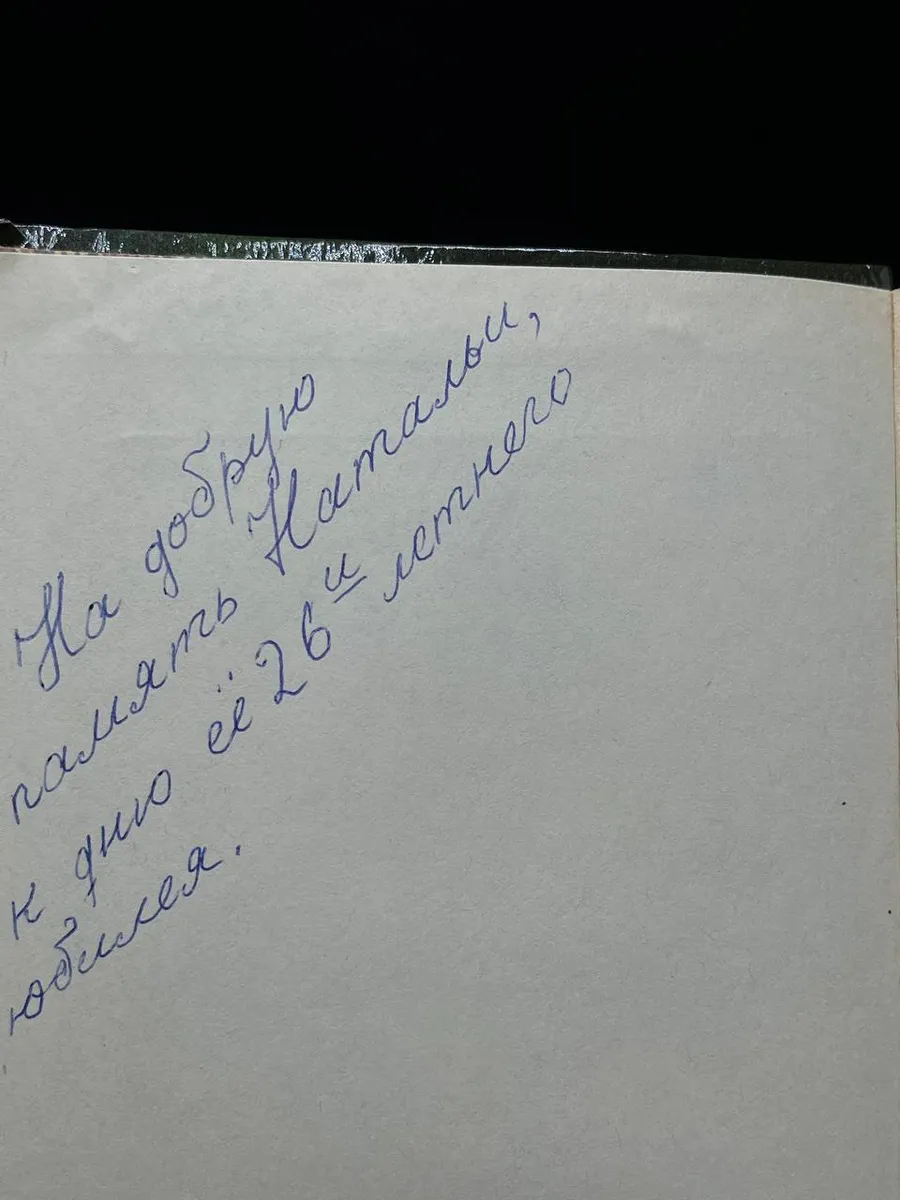 На добрую
память Натальи,
к дню её 26и летнего
юбилея.